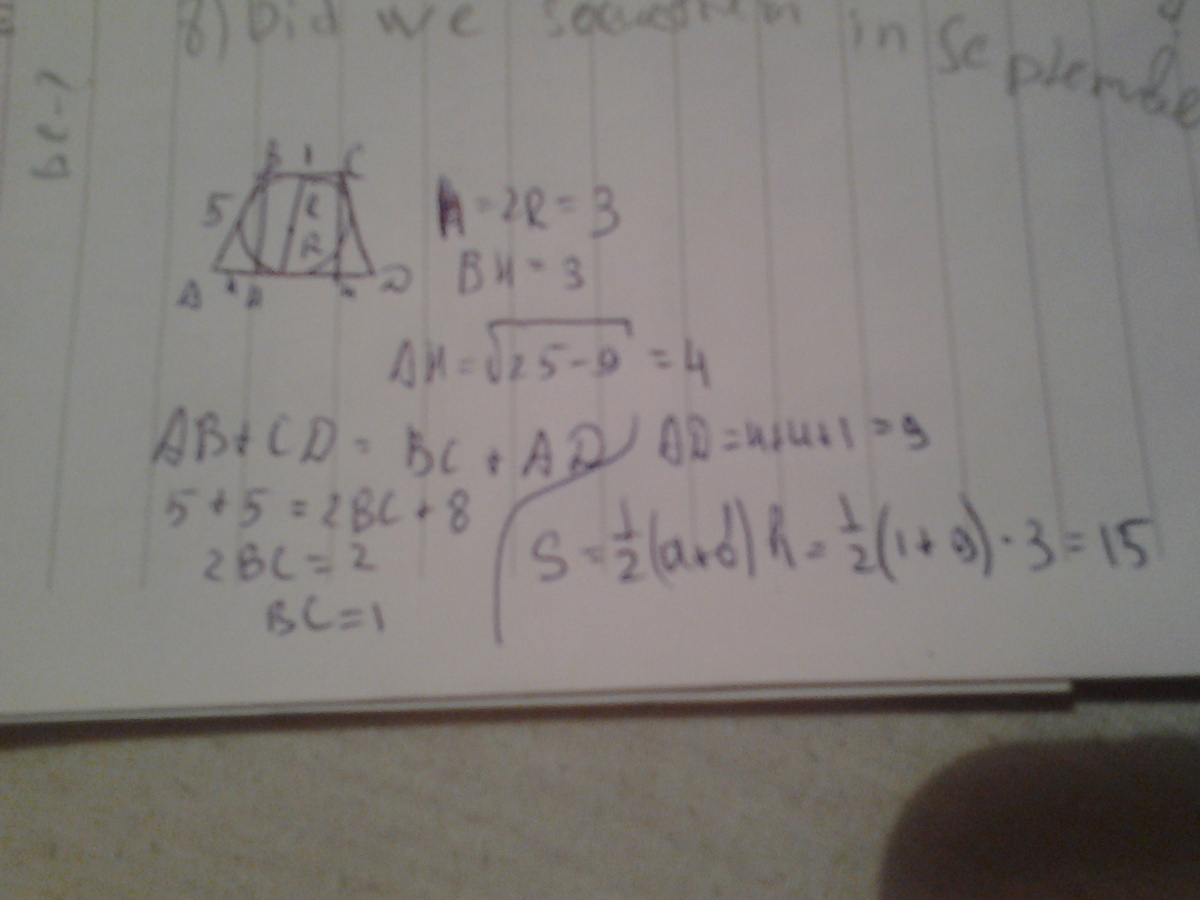 8) Did we in September
be-?
B 1 C
5 R
R
A 4 H 4 D
h = 2R = 3
BH = 3
AH = √25-9 = 4
AB + CD = BC + AD
AD = 4+4+1 = 9
5 + 5 = 2BC + 8
2BC = 2
BC = 1
S = 1/2 (a+b) h = 1/2 (1+9) · 3 = 15